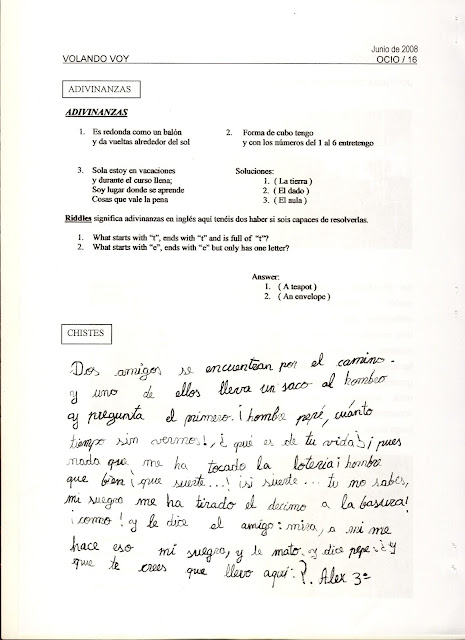 Junio de 2008
VOLANDO VOY OCIO / 16
ADIVINANZAS
ADIVINANZAS
1. Es redonda como un balón
y da vueltas alrededor del sol
2. Forma de cubo tengo
y con los números del 1 al 6 entretengo
3. Sola estoy en vacaciones
y durante el curso llena;
Soy lugar donde se aprende
Cosas que vale la pena
Soluciones:
1. ( La tierra )
2. ( El dado )
3. ( El aula )
Riddles significa adivinanzas en inglés aquí tenéis dos haber si sois capaces de resolverlas.
1. What starts with “t”, ends with “t” and is full of “t”?
2. What starts with “e”, ends with “e” but only has one letter?
Answer:
1. ( A teapot )
2. ( An envelope )
CHISTES
Dos amigos se encuentran por el camino.
y uno de ellos lleva un saco al hombro
y pregunta el primero. ¡hombre pepé, cuánto
tiempo sin vermos!, ¿qué es de tu vida? ¡pues
nada que me ha tocado la loteria ¡hombre
que bien ¡que suerte...! ¡si suerte... tu no sabes,
mi suegra me ha tirado el decimo a la basura!
¡como! y le dice el amigo: mira, a mi me
hace eso mi suegra, y la mato. y dice pepe: ¿y
que te crees que llevo aquí:?. Alex 3º